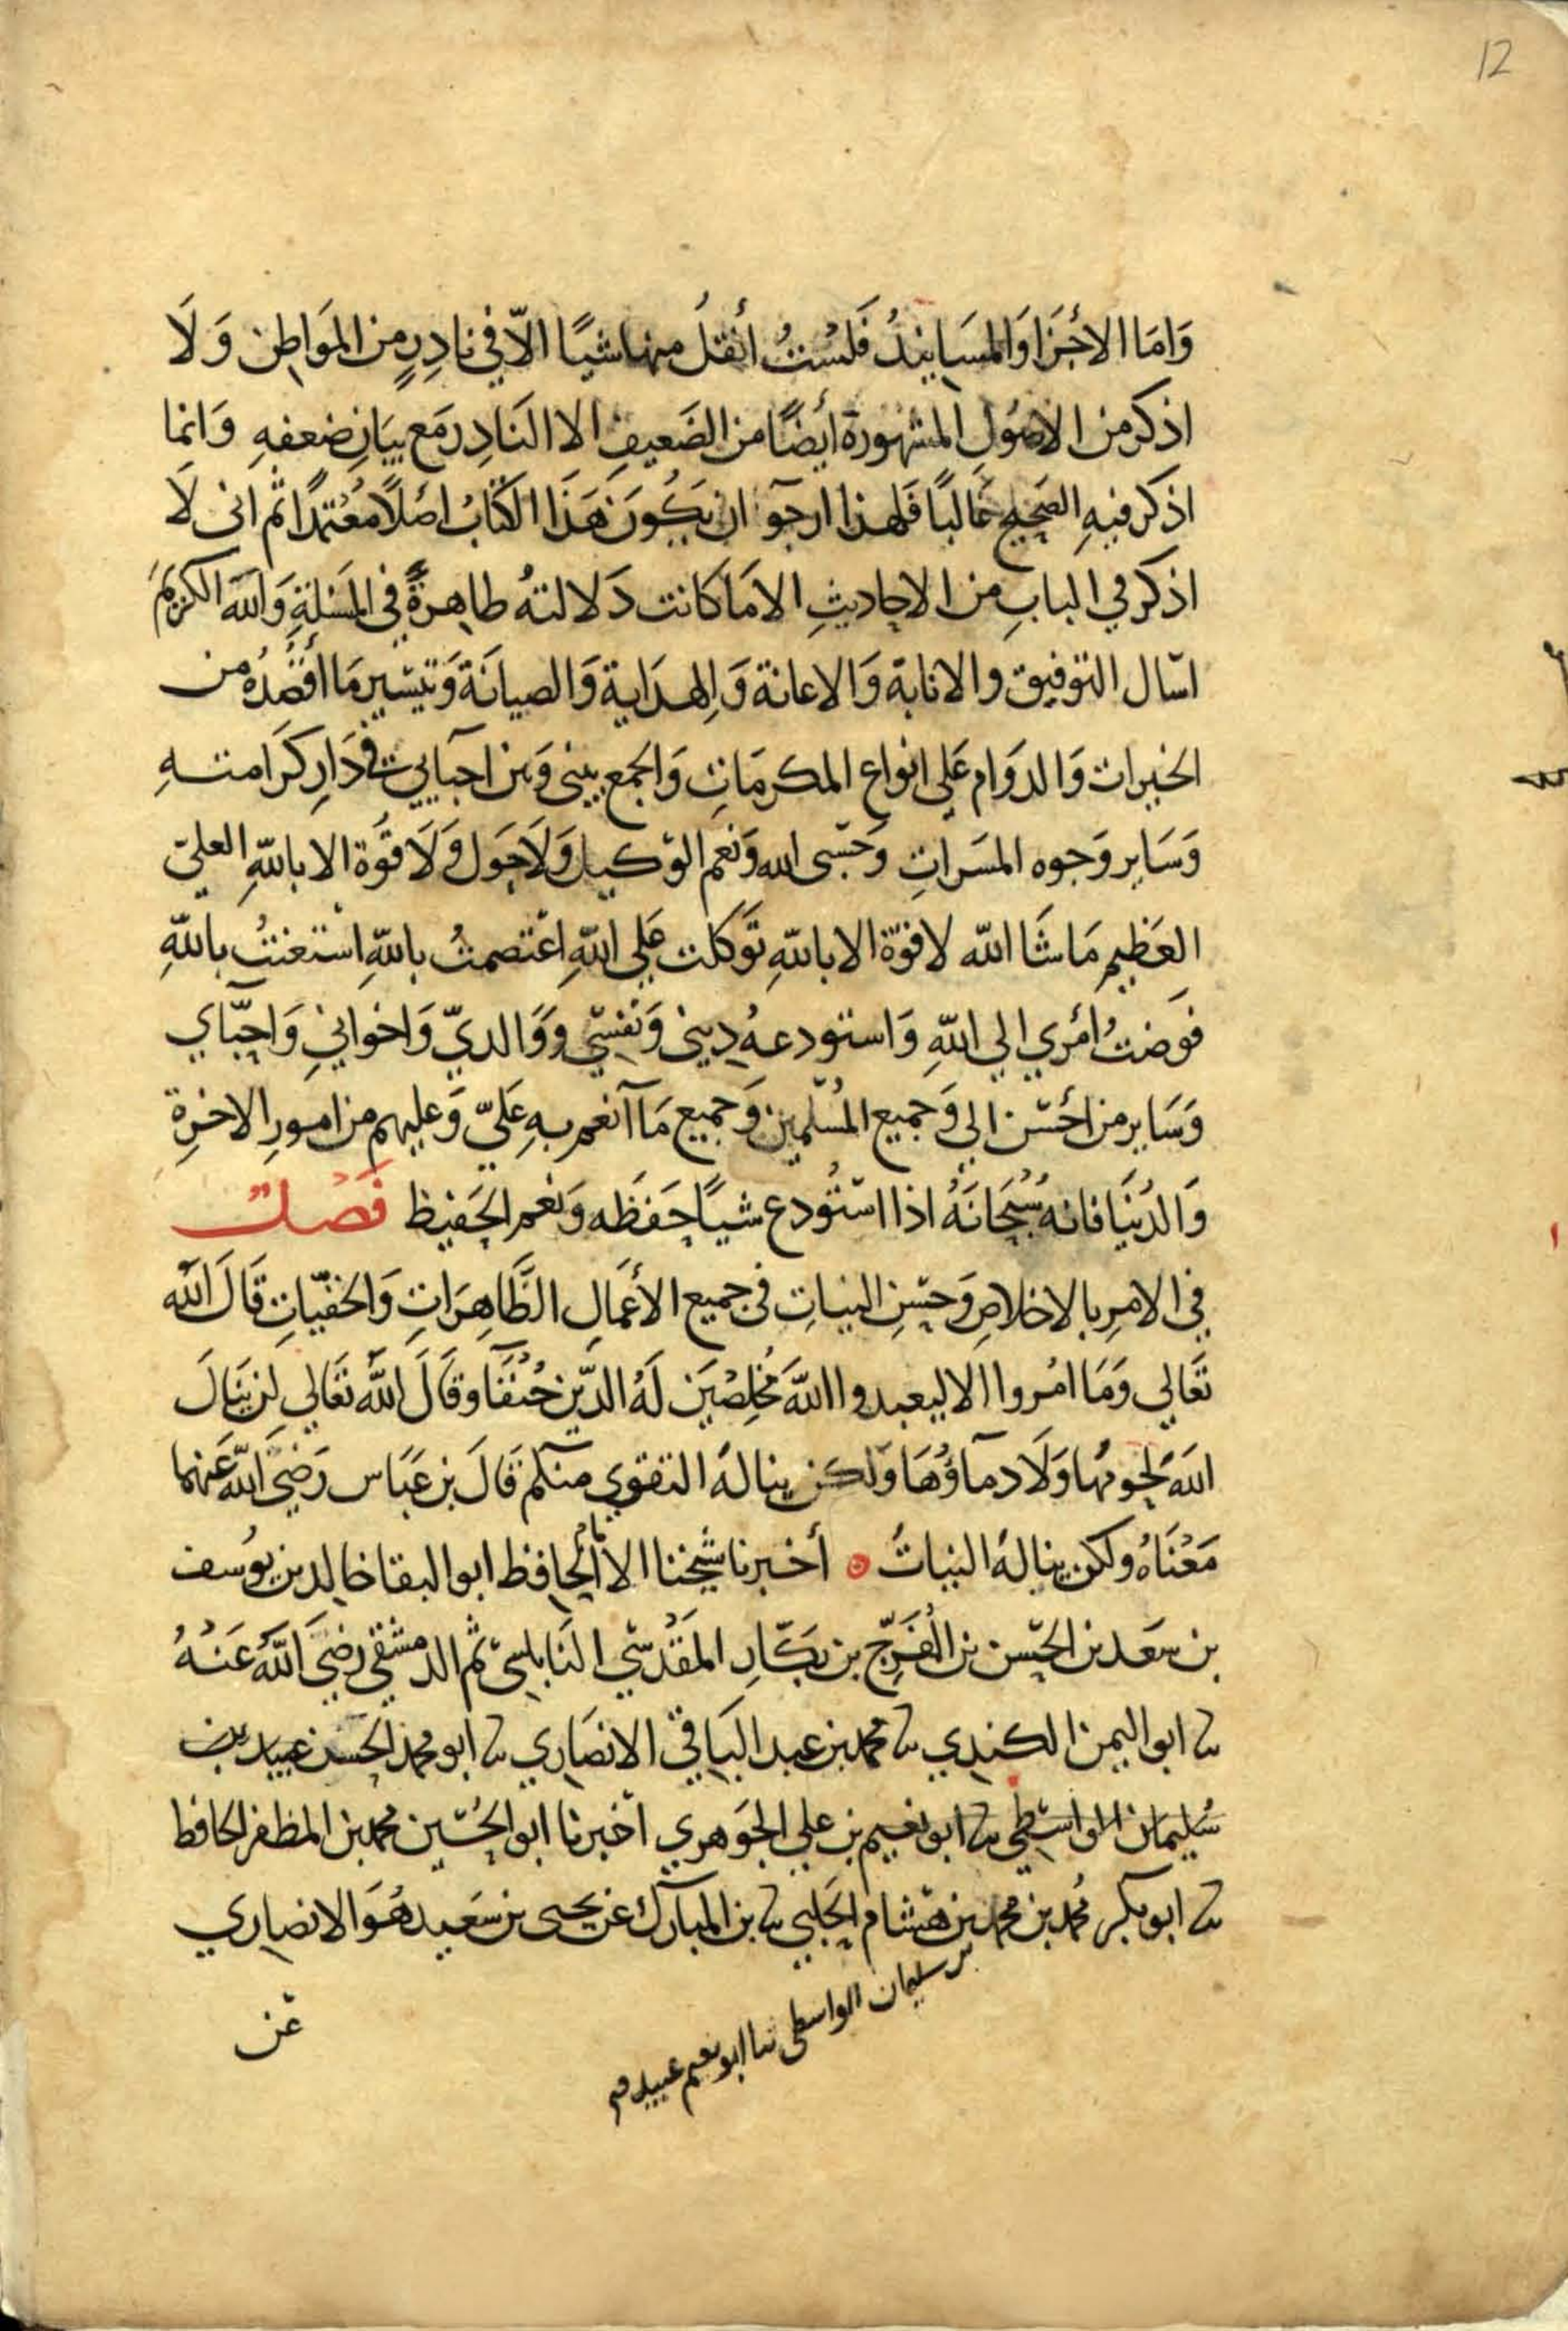 12
وَامَا الاجْزَا وَالمسَانِيدُ فَلسْتُ أنقلُ منها شيًا الاّ في نادِرٍ من المَوَاطِن وَلَا
اذكر من الاصُول المشهورة أيضًا من الضَعيفِ الا النَادِر مَع بيَانِ ضعفهِ وَانما
اذكر فيهِ الصَحيح غَالبًا فَلهذا ارجَو ان يَكُونَ هَذَا الكتَابُ اصْلًا مُعْتمَدًا ثم انى لَا
اذكر في البابِ من الاحاديثِ الا مَا كَانت دَلالتهُ ظاهِرةً في المَسْئلةِ وَاللّهَ الكريمَ
اسّال التوفيق والانابة وَالاعانة وَالهدَاية وَالصيانَة وَتيسّير مَا أقصُدُه من
الخيرات وَالدوَام عَلى انواع المكرمَاتِ وَالجَمع بينى وَبين احبَابي في دَارِ كرَامتهِ
وَسَاير وَجوه المسَراتِ وَحسّبى الله وَنعم الوَكيل وَلَا حَول وَلَا قوَة الا باللّهِ العليّ
العَظيمِ مَا شَا اللّه لا قوّة الا باللّهِ توَكلت عَلى اللّهِ اعْتصمتُ باللّهِ اسْتعنتُ باللّهِ
فوَضتُ امْري الي اللّهِ وَاستودعهُ دِيني وَنفسّي وَوَالديّ وَاخوانيِ وَاحبّاي
وَسَاير من احْسّن الي وَجميع المُسّلمين وَجميع مَا آنعم بهِ عَليّ وَعليهم من امورِ الاخرِة
وَالدُنيَا فانه سُبْحَانَهُ اذا اسّتُودع شيًا حَفظَه وَنعم الحَفيظ فَصْلٌ
في الامرِ بالاخلاصِ وَحسّنِ النياتِ في جميع الأعمَالِ الظَاهِرَاتِ وَالخفيّاتِ قَالَ اللّه
تَعَالي وَمَا امُروا الا ليعبدوا اللّهَ مُخلِصْيَن لَهُ الدّين حُنَفَا وقَالَ اللّهُ تعَالي لن يَنَالَ
اللّهَ لحومُها وَلَا دماؤُهَا وَلكن ينالهُ التقوي منكم قَالَ بن عَبَاس رَضيَ اللّهُ عَنهما
مَعْنَاهُ ولكن ينالهُ النياتُ ۞ أخبرنا شَيخنا الامام الحافظ ابو البقا خالد بن يوسُف
بن سَعَد بن الحسّن بن المُفَرِّج بن بكّارِ المَقْدسّي النَابلسيّ ثم الدمشقي رَضيَ اللّهُ عَنهُ
نا ابو اليمن الكندِي نا محمد بن عبد البَاقيّ الانصَاري نا ابو محمد الحَسَن عبيد بن
سُليمان الوَاسّطي نا ابو نعيم بن علي الجوَهري اخبرنا ابو الحُسّين محمد بن المظفر الحافظ
نا ابو بكر مُحمد بن محمد بن هشام الحَلبي نا بن المُبَارك عن يحيى بن سَعَيد هُوَ الانصاري
بن سليمان الواسطي نا ابو نعيم عبيد
عَن